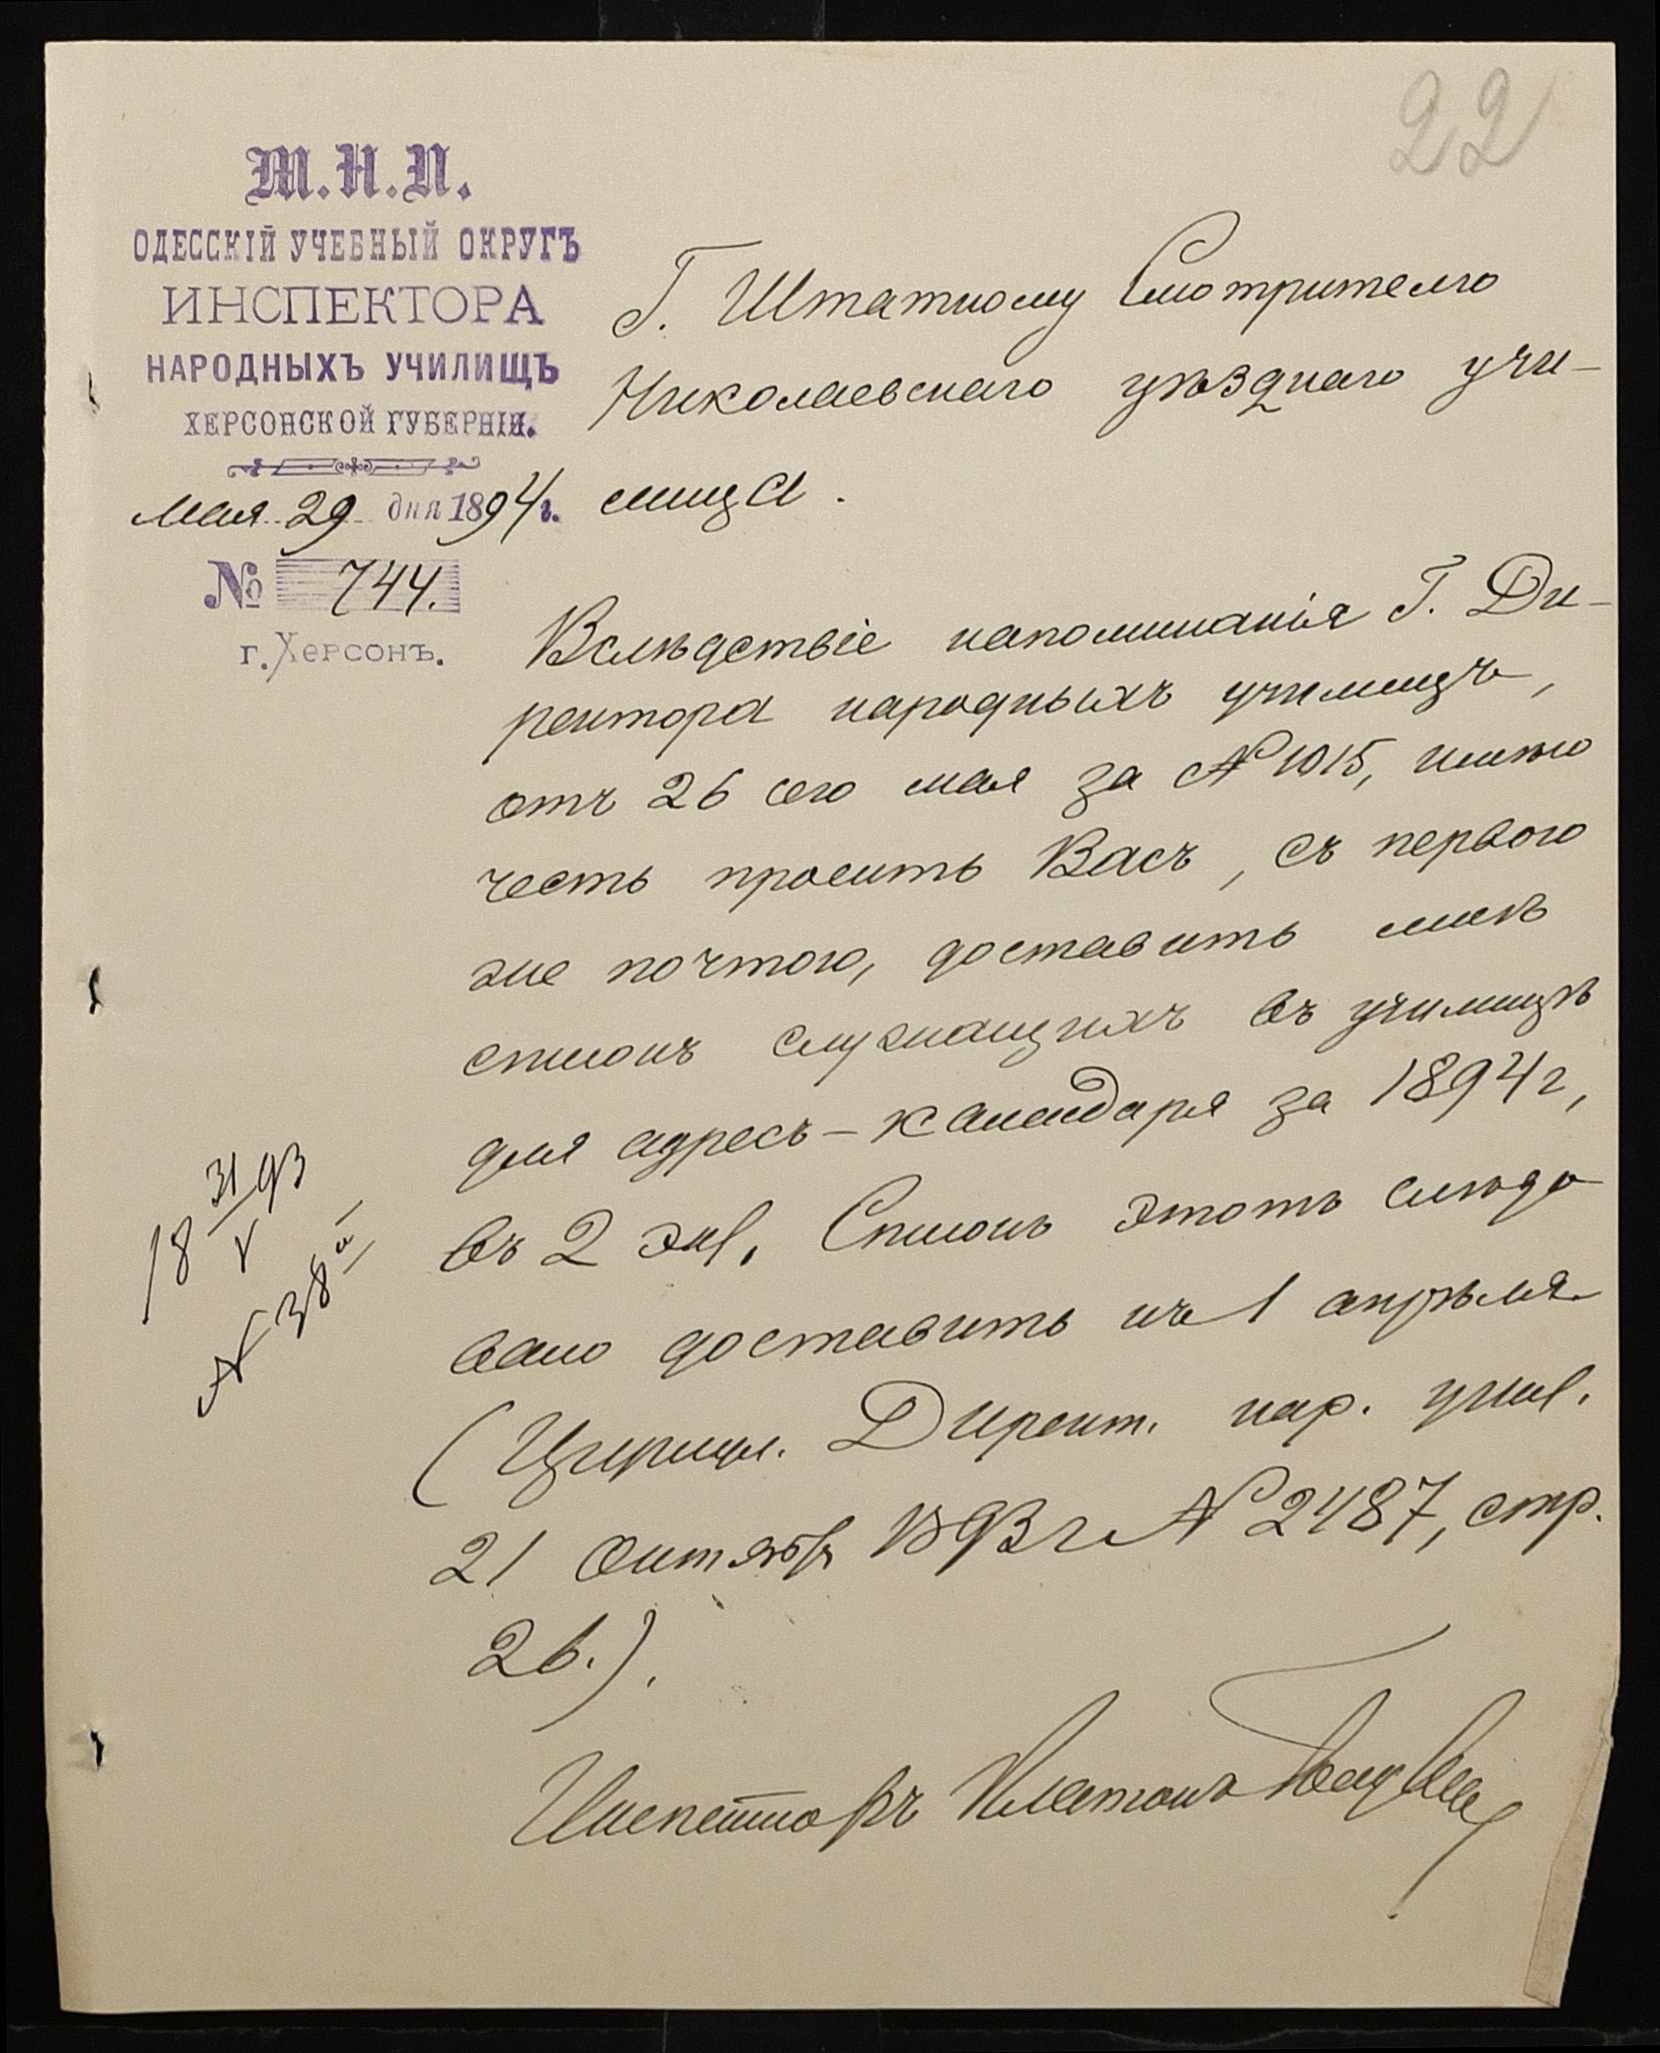 22
М.Н.П.
ОДЕССКІЙ УЧЕБНЫЙ ОКРУГЪ
ИНСПЕКТОРА
НАРОДНЫХЪ УЧИЛИЩЪ
ХЕРСОНСКОЙ ГУБЕРНІИ.
мая 29 дня 1894 г.
№ 744.
г. Херсонъ.
Г. Штатному Смотрителю
Николаевскаго уѣзднаго учи-
лища.
Вслѣдствіе напоминанія Г. Ди-
ректора народныхъ училищъ,
отъ 26 сего мая за № 1015, имѣю
честь просить Васъ, съ первою
же почтою, доставить мнѣ
списокъ служащихъ въ училищѣ
для адресъ-календаря за 1894 г,
въ 2 экз. Списокъ этотъ слѣдо
вало доставить къ 1 апрѣля
(Циркул. Директ. нар. учил.
21 октября 1893 г № 2487, стр.
26.).
18 31/V 93
№ 38
Инспекторъ Платонъ